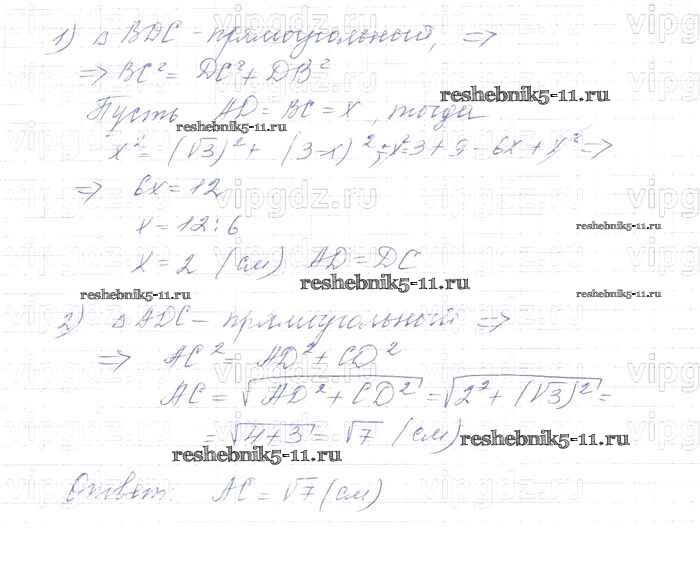 1) △ BDC - прямоугольный, ⇒
⇒ BC² = DC² + DB²
Пусть AD = BC = x, тогда
x² = (√3)² + (3-x)²; x² = 3 + 9 - 6x + x² ⇒
⇒ 6x = 12
x = 12 : 6
x = 2 (см) AD = DC
2) △ ADC - прямоугольный ⇒
⇒ AC² = AD² + CD²
AC = √AD² + CD² = √2² + (√3)² =
= √4+3 = √7 (см)
Ответ: AC = √7 (см)
reshebnik5-11.ru
reshebnik5-11.ru
reshebnik5-11.ru
reshebnik5-11.ru
reshebnik5-11.ru
reshebnik5-11.ru
reshebnik5-11.ru
reshebnik5-11.ru
vipgdz.ru
vipgdz.ru
vipgdz.ru
vipgdz.ru
vipgdz.ru
vipgdz.ru
vipgdz.ru
vipgdz.ru